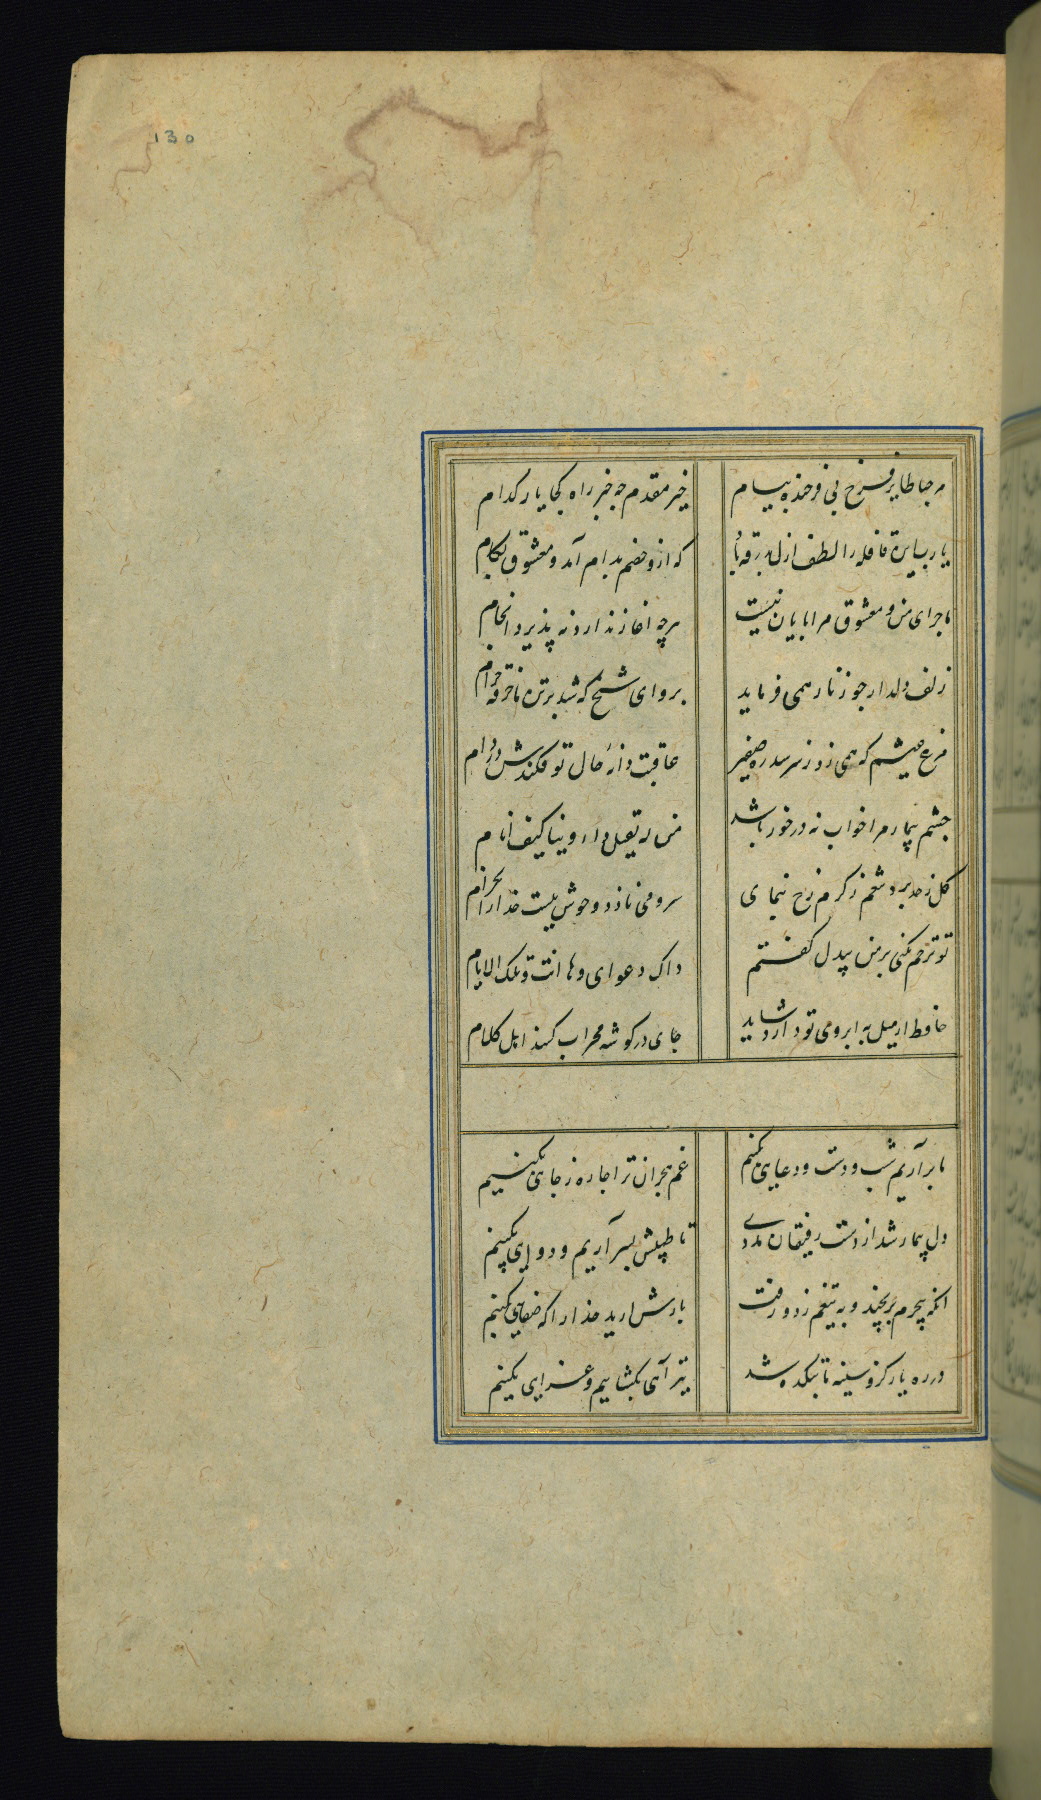 130
مرحبا طایر فرخ پی فرخنده پیام خیر مقدم چه خبر راه کجا یار کدام
یارب این قافله را لطف ازل بدرقه باد که ازو خصم بدام آمد و معشوق بکام
ماجرای من و معشوق مرا پایان نیست هرچه اغاز ندارد نه پذیرد انجام
زلف دلدار چو زنار همی فرماید برو ای شیخ که شد برتن ما خرقه حرام
مرغ عیشم که همی زد ز سر سدره صفیر عاقبت دانه خال تو فکندش در دام
چشم بیمار مرا خواب نه درخور باشد من له یقتل داء دنیا کیف انام
کل ز حد برد تنعم ز کرم رخ بنمای سرو می نازد و خوش نیست خدا را بخرام
تو ترحم نکنی بر من بیدل کفتم ذاک دعوای و ها انت و تلک الایام
حافظ ار میل به ابروی تو دارد شاید جای در کوشه محراب کنند اهل کلام
ما برآریم شب و دست و دعایی بکنیم غم هجران ترا چاره ز جایی بکنیم
دل بیمار شد از دست رفیقان مددی تا طبیبش بسر آریم و دوایی بکنیم
انکه بیجرم برنجید و به تیغم زد و رفت بازش ارید خدا را که صفایی بکنیم
در ره یار کزو سینه ما بتکده شد تیر آهی بکشاییم و غزایی بکنیم